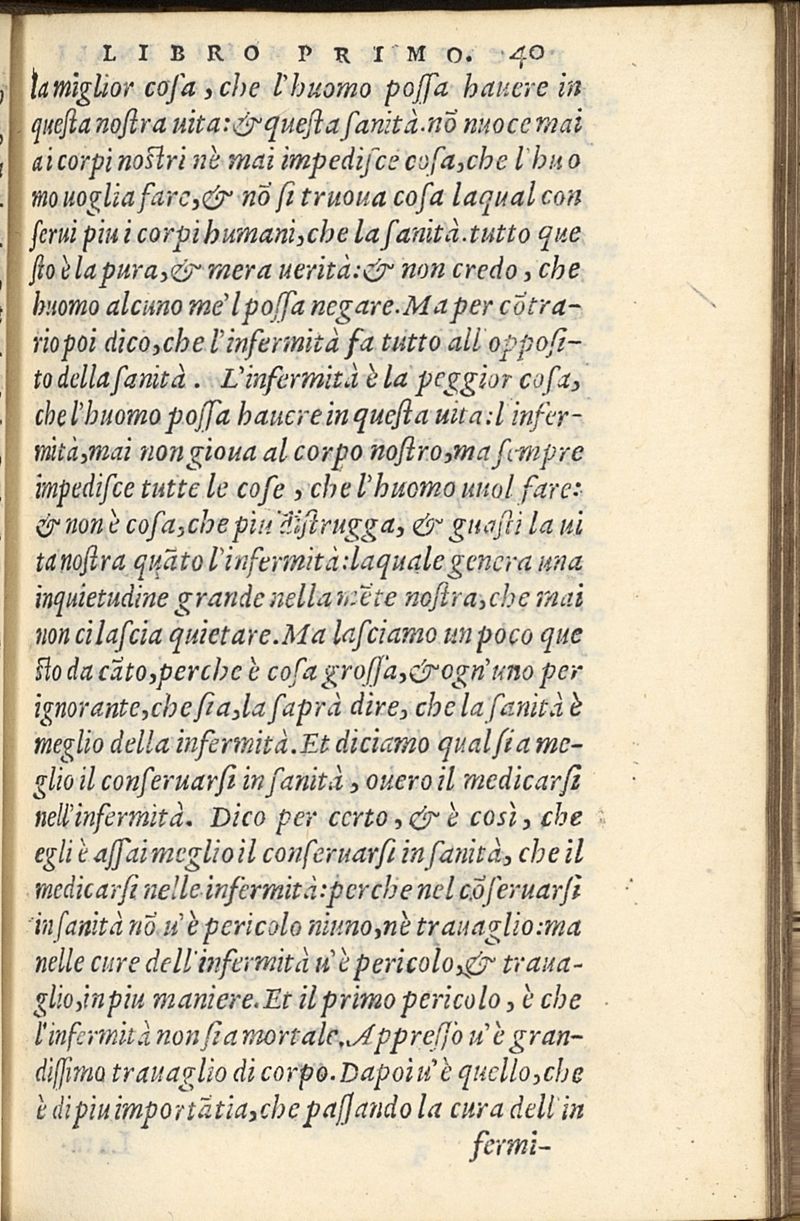 LIBRO PRIMO. 40
la miglior coſa, che l'huomo poſſa hauere in
queſta noſtra uita: & queſta ſanità. nõ nuoce mai
ai corpi noſtri nè mai impediſce coſa, che l'huo
mo uoglia fare, & nõ ſi truoua coſa laqual con
ſerui piu i corpi humani, che la ſanità. tutto que
ſto è la pura, & mera uerità: & non credo, che
huomo alcuno me'l poſſa negare. Ma per cõtra-
rio poi dico, che l'infermità fa tutto all'oppoſi-
to della ſanità. L'infermità è la peggior coſa,
che l'huomo poſſa hauere in queſta uita: l'infer-
mità, mai non gioua al corpo noſtro, ma ſempre
impediſce tutte le coſe, che l'huomo uuol fare:
& non è coſa, che piu diſtrugga, & guaſti la ui
ta noſtra quãto l'infermità: laquale genera una
inquietudine grande nella mẽte noſtra, che mai
non ci laſcia quietare. Ma laſciamo un poco que
ſto da cãto, perche è coſa groſſa, & ogn'uno per
ignorante, che ſia, la ſaprà dire, che la ſanità è
meglio della infermità. Et diciamo qual ſia me-
glio il conſeruarſi in ſanità, ouero il medicarſi
nell'infermità. Dico per certo, & è così, che
egli è aſſai meglio il conſeruarſi in ſanità, che il
medicarſi nelle infermità: perche nel cõſeruarſi
in ſanità nõ u'è pericolo niuno, nè trauaglio: ma
nelle cure dell'infermità u'è pericolo, & traua-
glio, in piu maniere. Et il primo pericolo, è che
l'infermità non ſia mortale. Appreſſo u'è gran-
diſſimo trauaglio di corpo. Dapoi u'è quello, che
è di piu importãtia, che paſſando la cura dell'in
fermi-